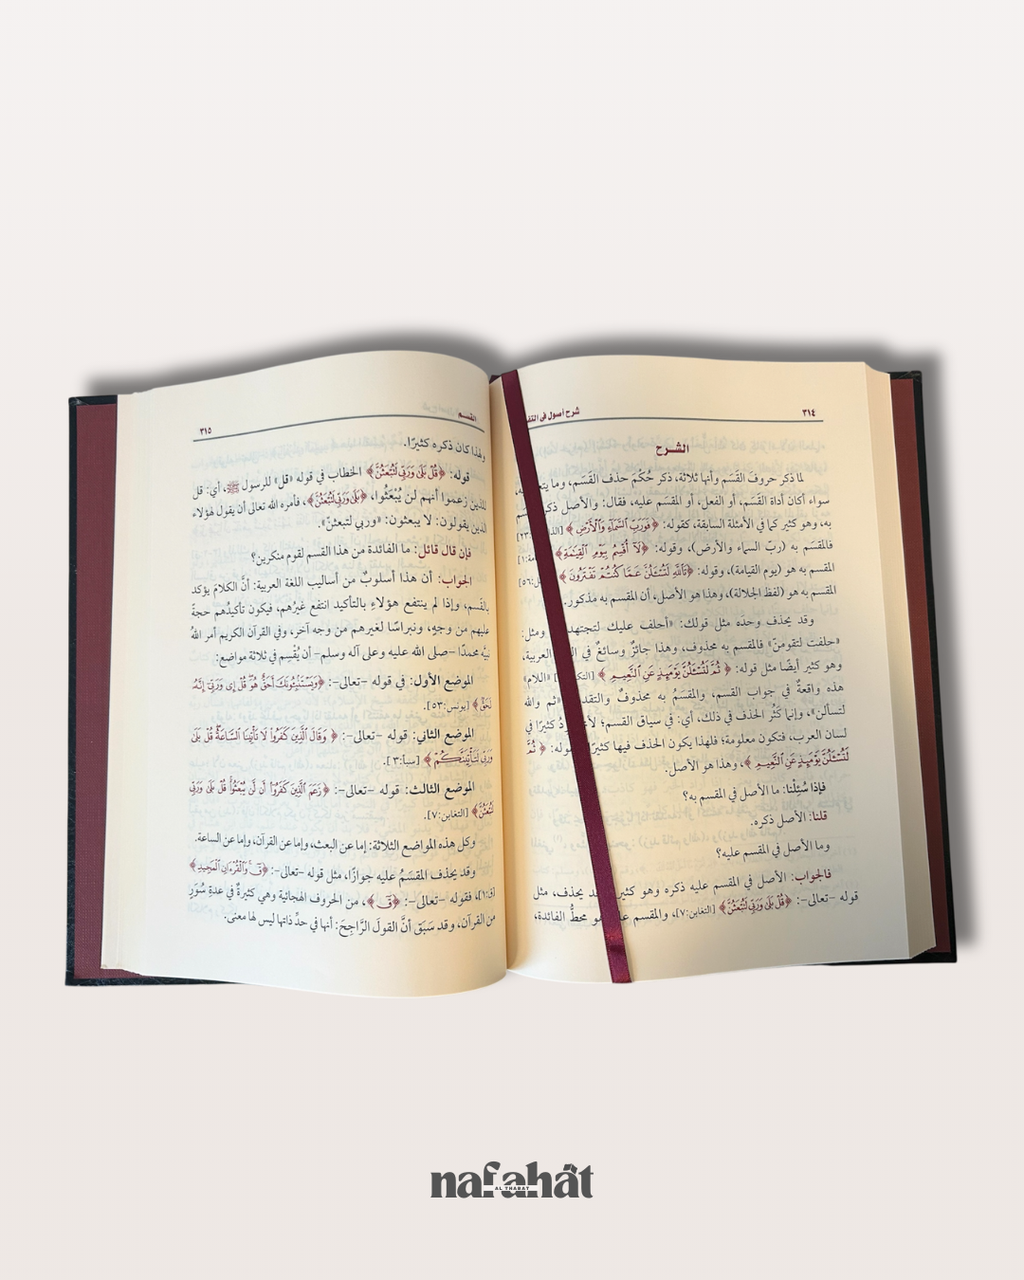 ٣١٤
شرح أصول في التف
الشرح
لما ذكر حروفَ القَسَم وأنها ثلاثة، ذكر حُكْمَ حذف القَسَم، وما يتع به،
سواء أكان أداة القَسَم، أو الفعل، أو المقسَم عليه، فقال: والأصل ذكر
به، وهو كثير كما في الأمثلة السابقة، كقوله: ﴿فَوَرَبِّ ٱلسَّمَآءِ وَٱلْأَرْضِ﴾ [الذا ٢٣]
فالمقسَم به (ربّ السماء والأرض)، وقوله: ﴿لَآ أُقْسِمُ بِيَوْمِ ٱلْقِيَٰمَةِ﴾ مة:١]
المقسم به هو (يوم القيامة)، وقوله: ﴿تَٱللَّهِ لَتُسْـَٔلُنَّ عَمَّا كُنتُمْ تَفْتَرُونَ﴾ ل:٥٦]
المقسم به هو (لفظ الجلالة)، وهذا هو الأصل، أن المقسم به مذكور.
وقد يحذف وحدَه مثل قولك: «أحلف عليك لتجتهد ومثل:
«حلفت لتقومنّ» فالمقسم به محذوف، وهذا جائزٌ وسائغٌ في العربية،
وهو كثير أيضًا مثل قوله: ﴿ثُمَّ لَتُسْـَٔلُنَّ يَوْمَئِذٍ عَنِ ٱلنَّعِيمِ﴾ [التك ] «اللام»
هذه واقعةٌ في جواب القسم، والمقسَمُ به محذوفٌ والتقد «ثم والله
لتسألن»، وإنما كَثُر الحذف في ذلك، أي: في سياق القسم؛ لأ دُ كثيرًا في
لسان العرب، فتكون معلومة؛ فلهذا يكون الحذف فيها كثير وله: ﴿ثُمَّ
لَتُسْـَٔلُنَّ يَوْمَئِذٍ عَنِ ٱلنَّعِيمِ﴾، وهذا هو الأصل.
فإذا سُئِلْنا: ما الأصل في المقسم به؟
قلنا: الأصل ذكره.
وما الأصل في المقسم عليه؟
فالجواب: الأصل في المقسم عليه ذكره وهو كثير د يحذف، مثل
قوله -تعالى-: ﴿قُلْ بَلَىٰ وَرَبِّى لَتُبْعَثُنَّ﴾ [التغابن:٧]، والمقسم علـ هو محطُّ الفائدة،
القسم
٣١٥
ولهذا كان ذكره كثيرًا.
قوله: ﴿قُلْ بَلَىٰ وَرَبِّى لَتُبْعَثُنَّ﴾ الخطاب في قوله «قل» للرسول ﷺ، أي: قل
للذين زعموا أنهم لن يُبْعَثُوا، ﴿بَلَىٰ وَرَبِّى لَتُبْعَثُنَّ﴾، فأمره الله تعالى أن يقول لهؤلاء
الذين يقولون: لا يبعثون: «وربي لتبعثنّ».
فإن قال قائل: ما الفائدة من هذا القسم لقوم منكرين؟
الجواب: أن هذا أسلوبٌ من أساليب اللغة العربية: أنَّ الكلامَ يؤكد
بالقَسم، وإذا لم ينتفع هؤلاءِ بالتأكيد انتفع غيرُهم، فيكون تأكيدُهم حجةً
عليهم من وجهٍ، ونبراسًا لغيرهم من وجه آخر، وفي القرآن الكريم أمر اللهُ
نبيَّه محمدًا -صلى الله عليه وعلى آله وسلم- أن يُقْسِم في ثلاثة مواضع:
الموضع الأول: في قوله -تعالى-: ﴿وَيَسْتَنۢبِـُٔونَكَ أَحَقٌّ هُوَ قُلْ إِى وَرَبِّىٓ إِنَّهُۥ
لَحَقٌّ﴾ [يونس:٥٣].
الموضع الثاني: قوله -تعالى-: ﴿وَقَالَ ٱلَّذِينَ كَفَرُوا۟ لَا تَأْتِينَا ٱلسَّاعَةُ قُلْ بَلَىٰ
وَرَبِّى لَتَأْتِيَنَّكُمْ﴾ [سبأ:٣].
الموضع الثالث: قوله -تعالى-: ﴿زَعَمَ ٱلَّذِينَ كَفَرُوٓا۟ أَن لَّن يُبْعَثُوا۟ قُلْ بَلَىٰ وَرَبِّى
لَتُبْعَثُنَّ﴾ [التغابن:٧].
وكل هذه المواضع الثلاثة: إما عن البعث، وإما عن القرآن، وإما عن الساعة.
وقد يحذف المقسَمُ عليه جوازًا، مثل قوله -تعالى-: ﴿قٓ وَٱلْقُرْءَانِ ٱلْمَجِيدِ﴾
[ق:١]، فقوله -تعالى-: ﴿قٓ﴾، من الحروف الهجائية وهي كثيرةٌ في عدةِ سُوَرٍ
من القرآن، وقد سَبَق أنَّ القولَ الرَّاجِحَ: أنها في حدِّ ذاتها ليس لها معنى.
nafahāt
AL THABAT